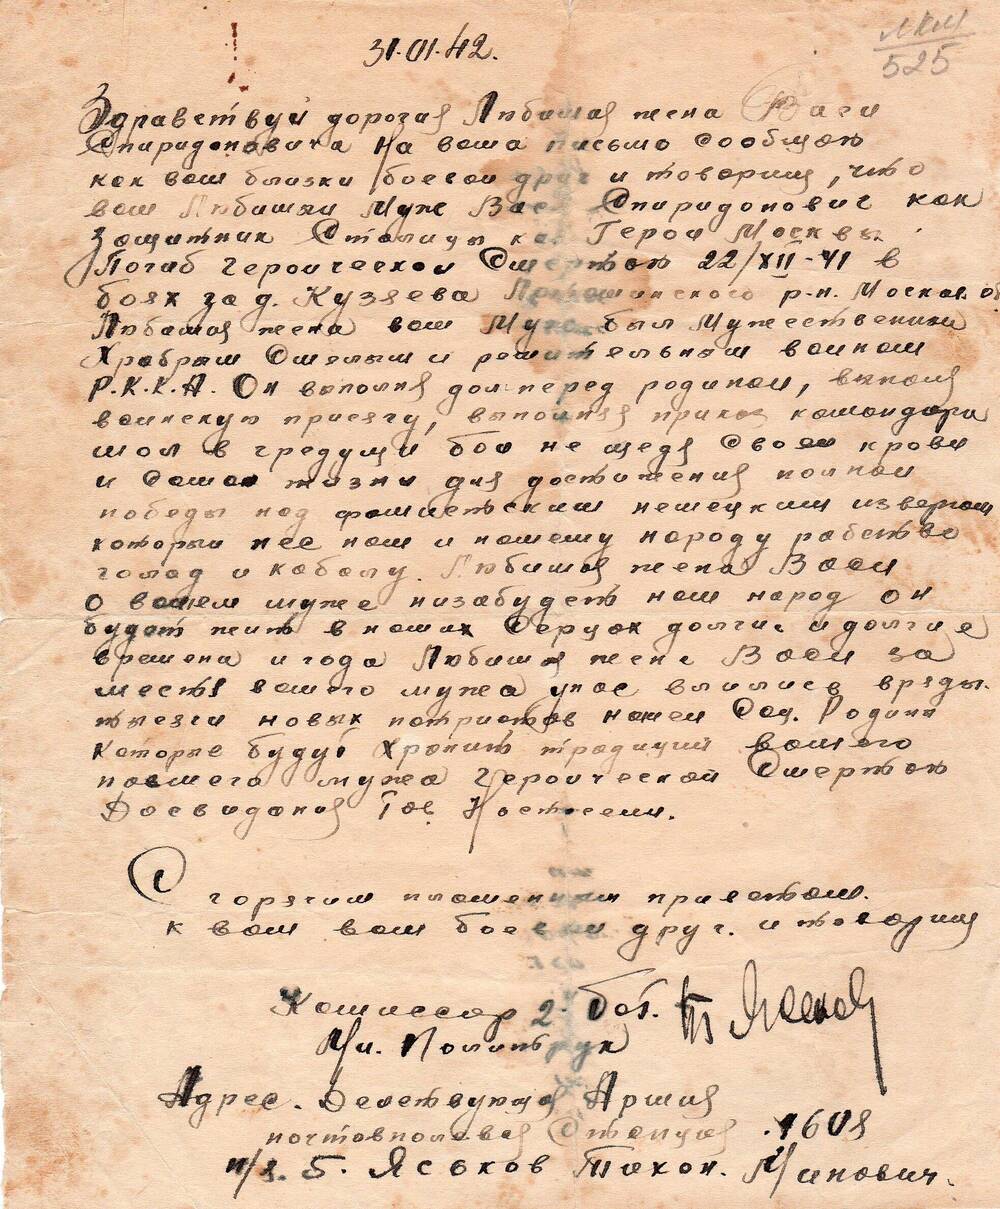 31.01.42.
МКМ
525
Здравствуй дорогая Любимая жена Васи
Спиридоновича На ваша письмо Сообщаю
как ваш близки боевои друг и товарищ, что
ваш Любимыи Муж Вас Спиридонович как
Защитник Столицы как Герои Москвы
Погаб Героическои Смертью 22/XII-41 в
боях за д. Кузяева р-н. Москов. об
Любимая жена ваш Мужа был Мужественики
Храбрым Смелым и решительным воином
Р.К.К.А. Он выполняя долг перед родинои, выполняя
воинскую присягу, выполняя приказ командира
шол в гредущи бои не щедя Своеи крови
и Самои жизни для достижения полнои
победы над фашистским немецким извергам
которыи нес нам и нашему народу рабство
голад и кабалу. Любимая жена Васи
О вашем муже низабудеть наш народ Он
будет жить в наших Серцах долгие и долгие
времена и года Любимая жена Васи за
места вашего мужа унас влились вряды.
тысячи новых патриотов нашеи Соц. Родины
которые будут Хранить традиции вашего
павшего мужа Героической Смертью
Досвидания Тов.
С горячим пламенным приветом.
к вам ваш боевои друг. и товарищ
Комиссар 2. бат.
Политрук
Адрес. Деиствующая Армия
почтовполевая Станция 1608
п/я. 5. Яськов Тихон.